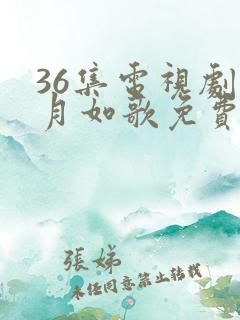 36集電視劇
月如歌免費
張娣
未经同意禁止转载